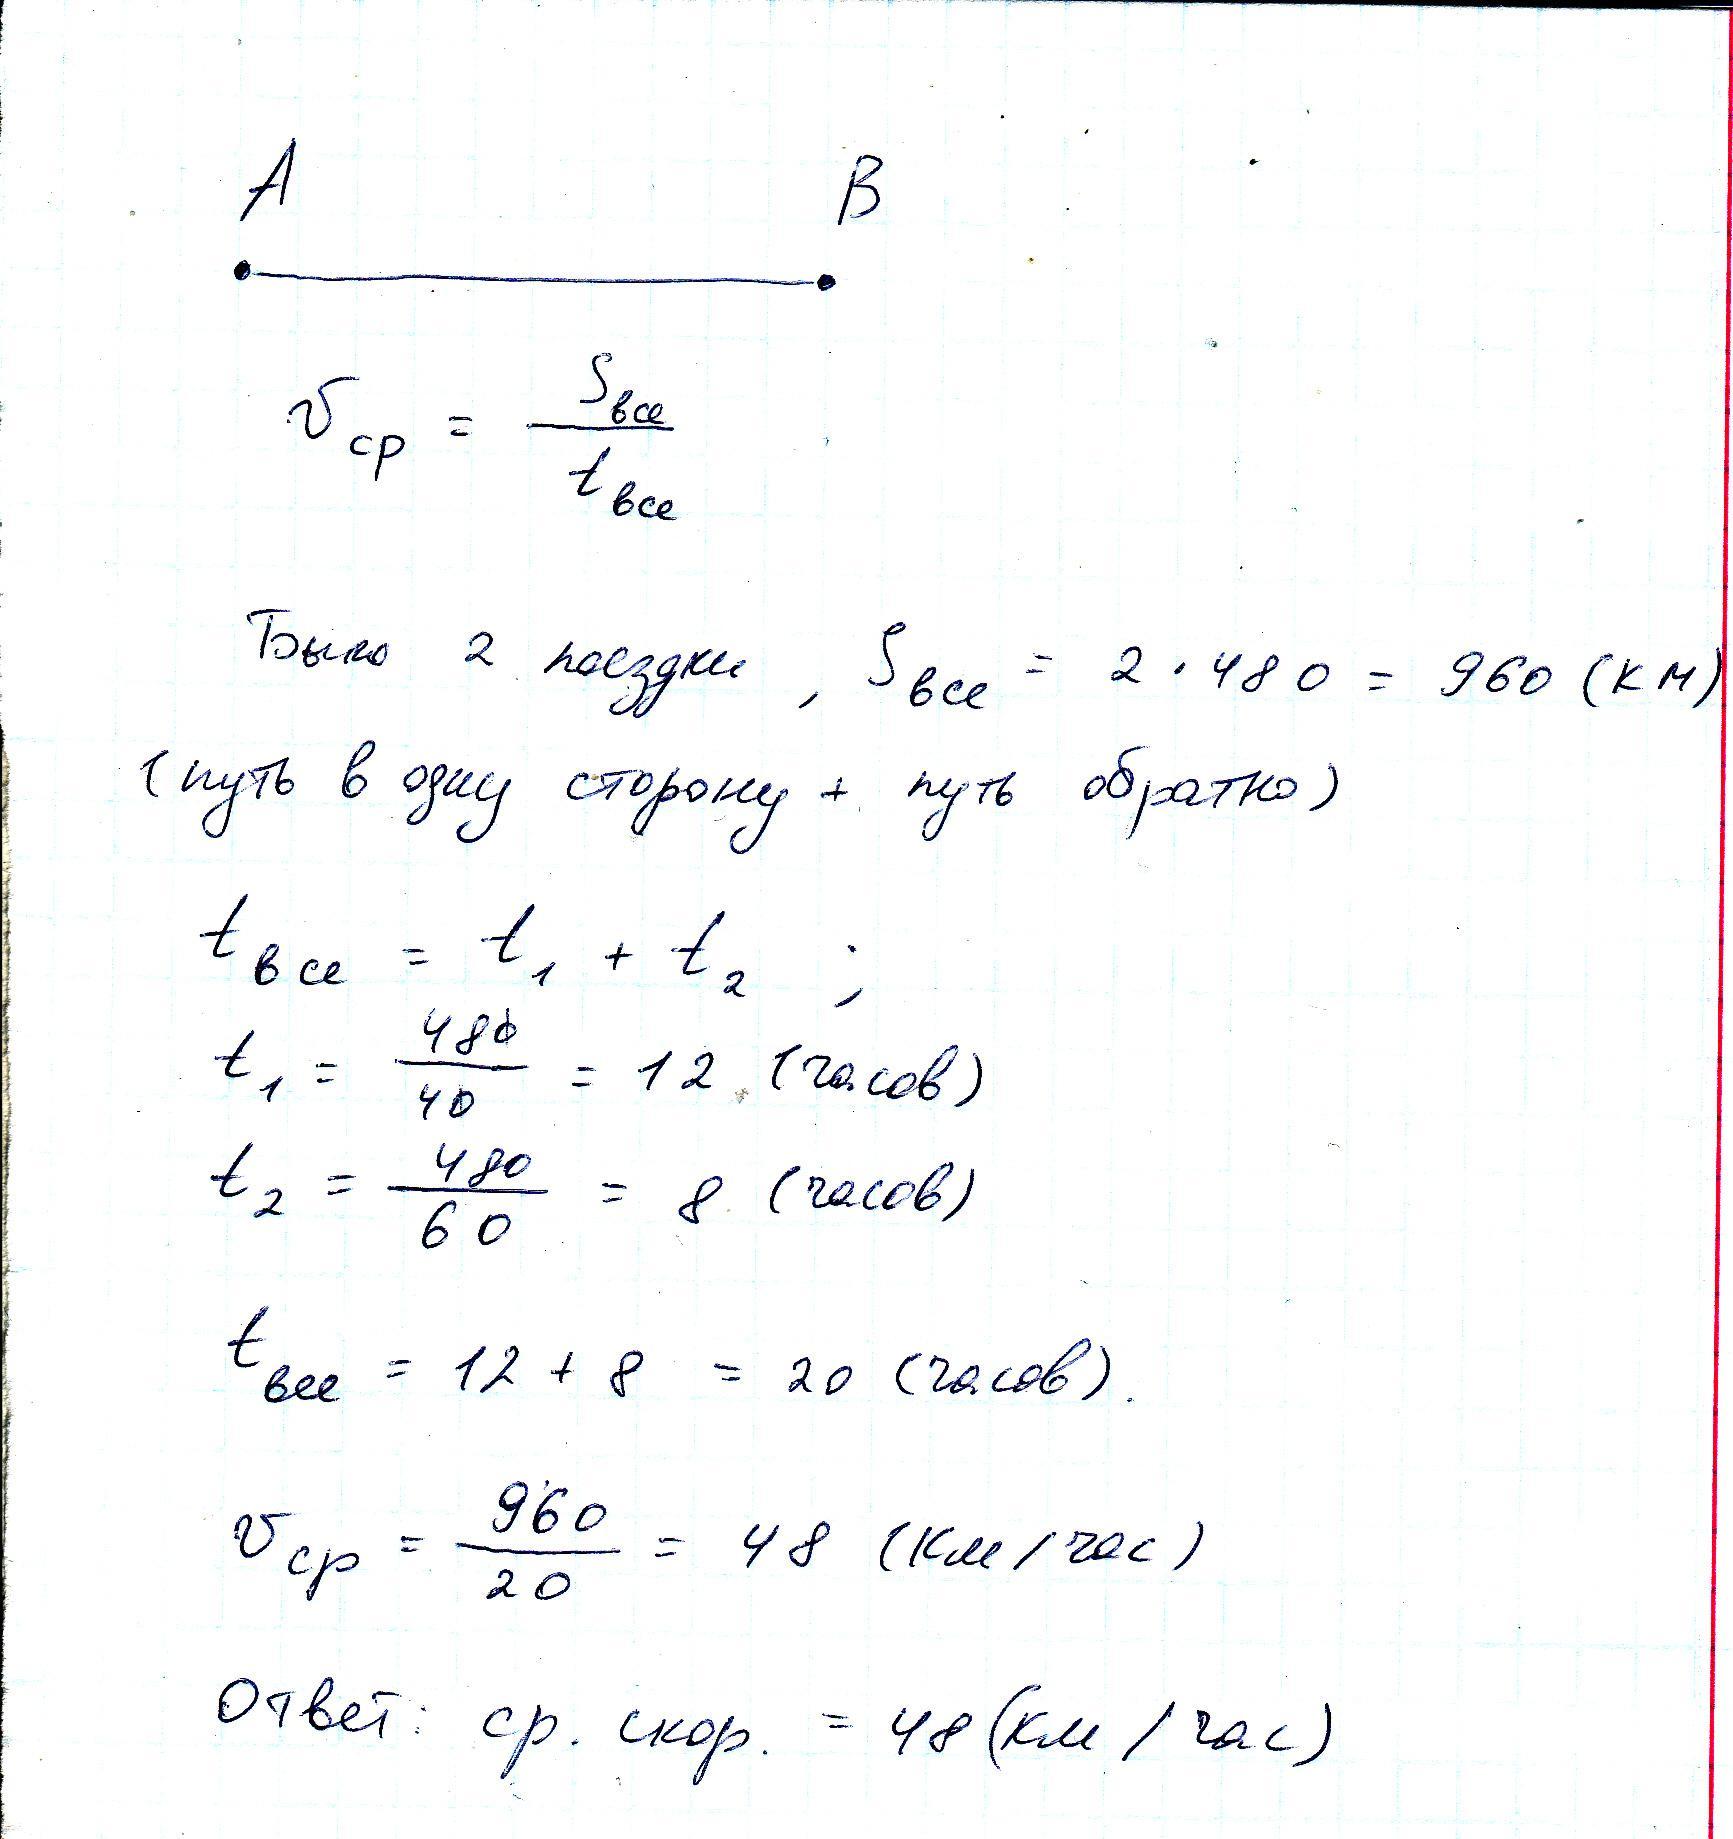 A B
v ср = S все / t все
Было 2 поездки , S все = 2 · 480 = 960 (км)
(путь в одну сторону + путь обратно)
t все = t 1 + t 2 ;
t 1 = 480 / 40 = 12 (часов)
t 2 = 480 / 60 = 8 (часов)
t все = 12 + 8 = 20 (часов).
v ср = 960 / 20 = 48 (км/час)
Ответ: ср. скор. = 48 (км/час)